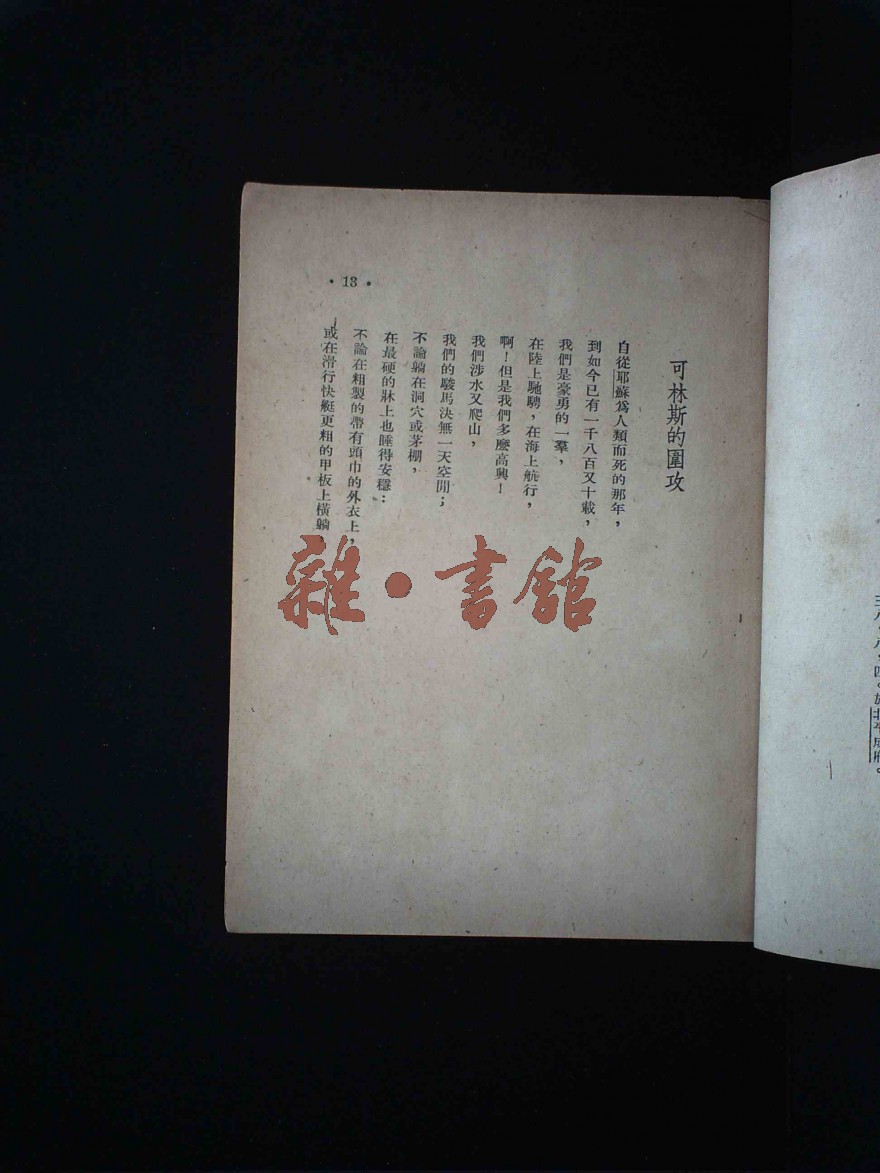 可林斯的圍攻
自從耶蘇爲人類而死的那年，
到如今已有一千八百又十載，
我們是豪勇的一羣，
在陸上馳騁，在海上航行，
啊！但是我們多麼高興！
我們涉水又爬山，
我們的駿馬決無一天空閒；
不論躺在洞穴或茅棚，
在最硬的牀上也睡得安穩：
不論在粗製的帶有頭巾的外衣上，
或在滑行快艇更粗的甲板上橫躺
• 13 •
雜•書館